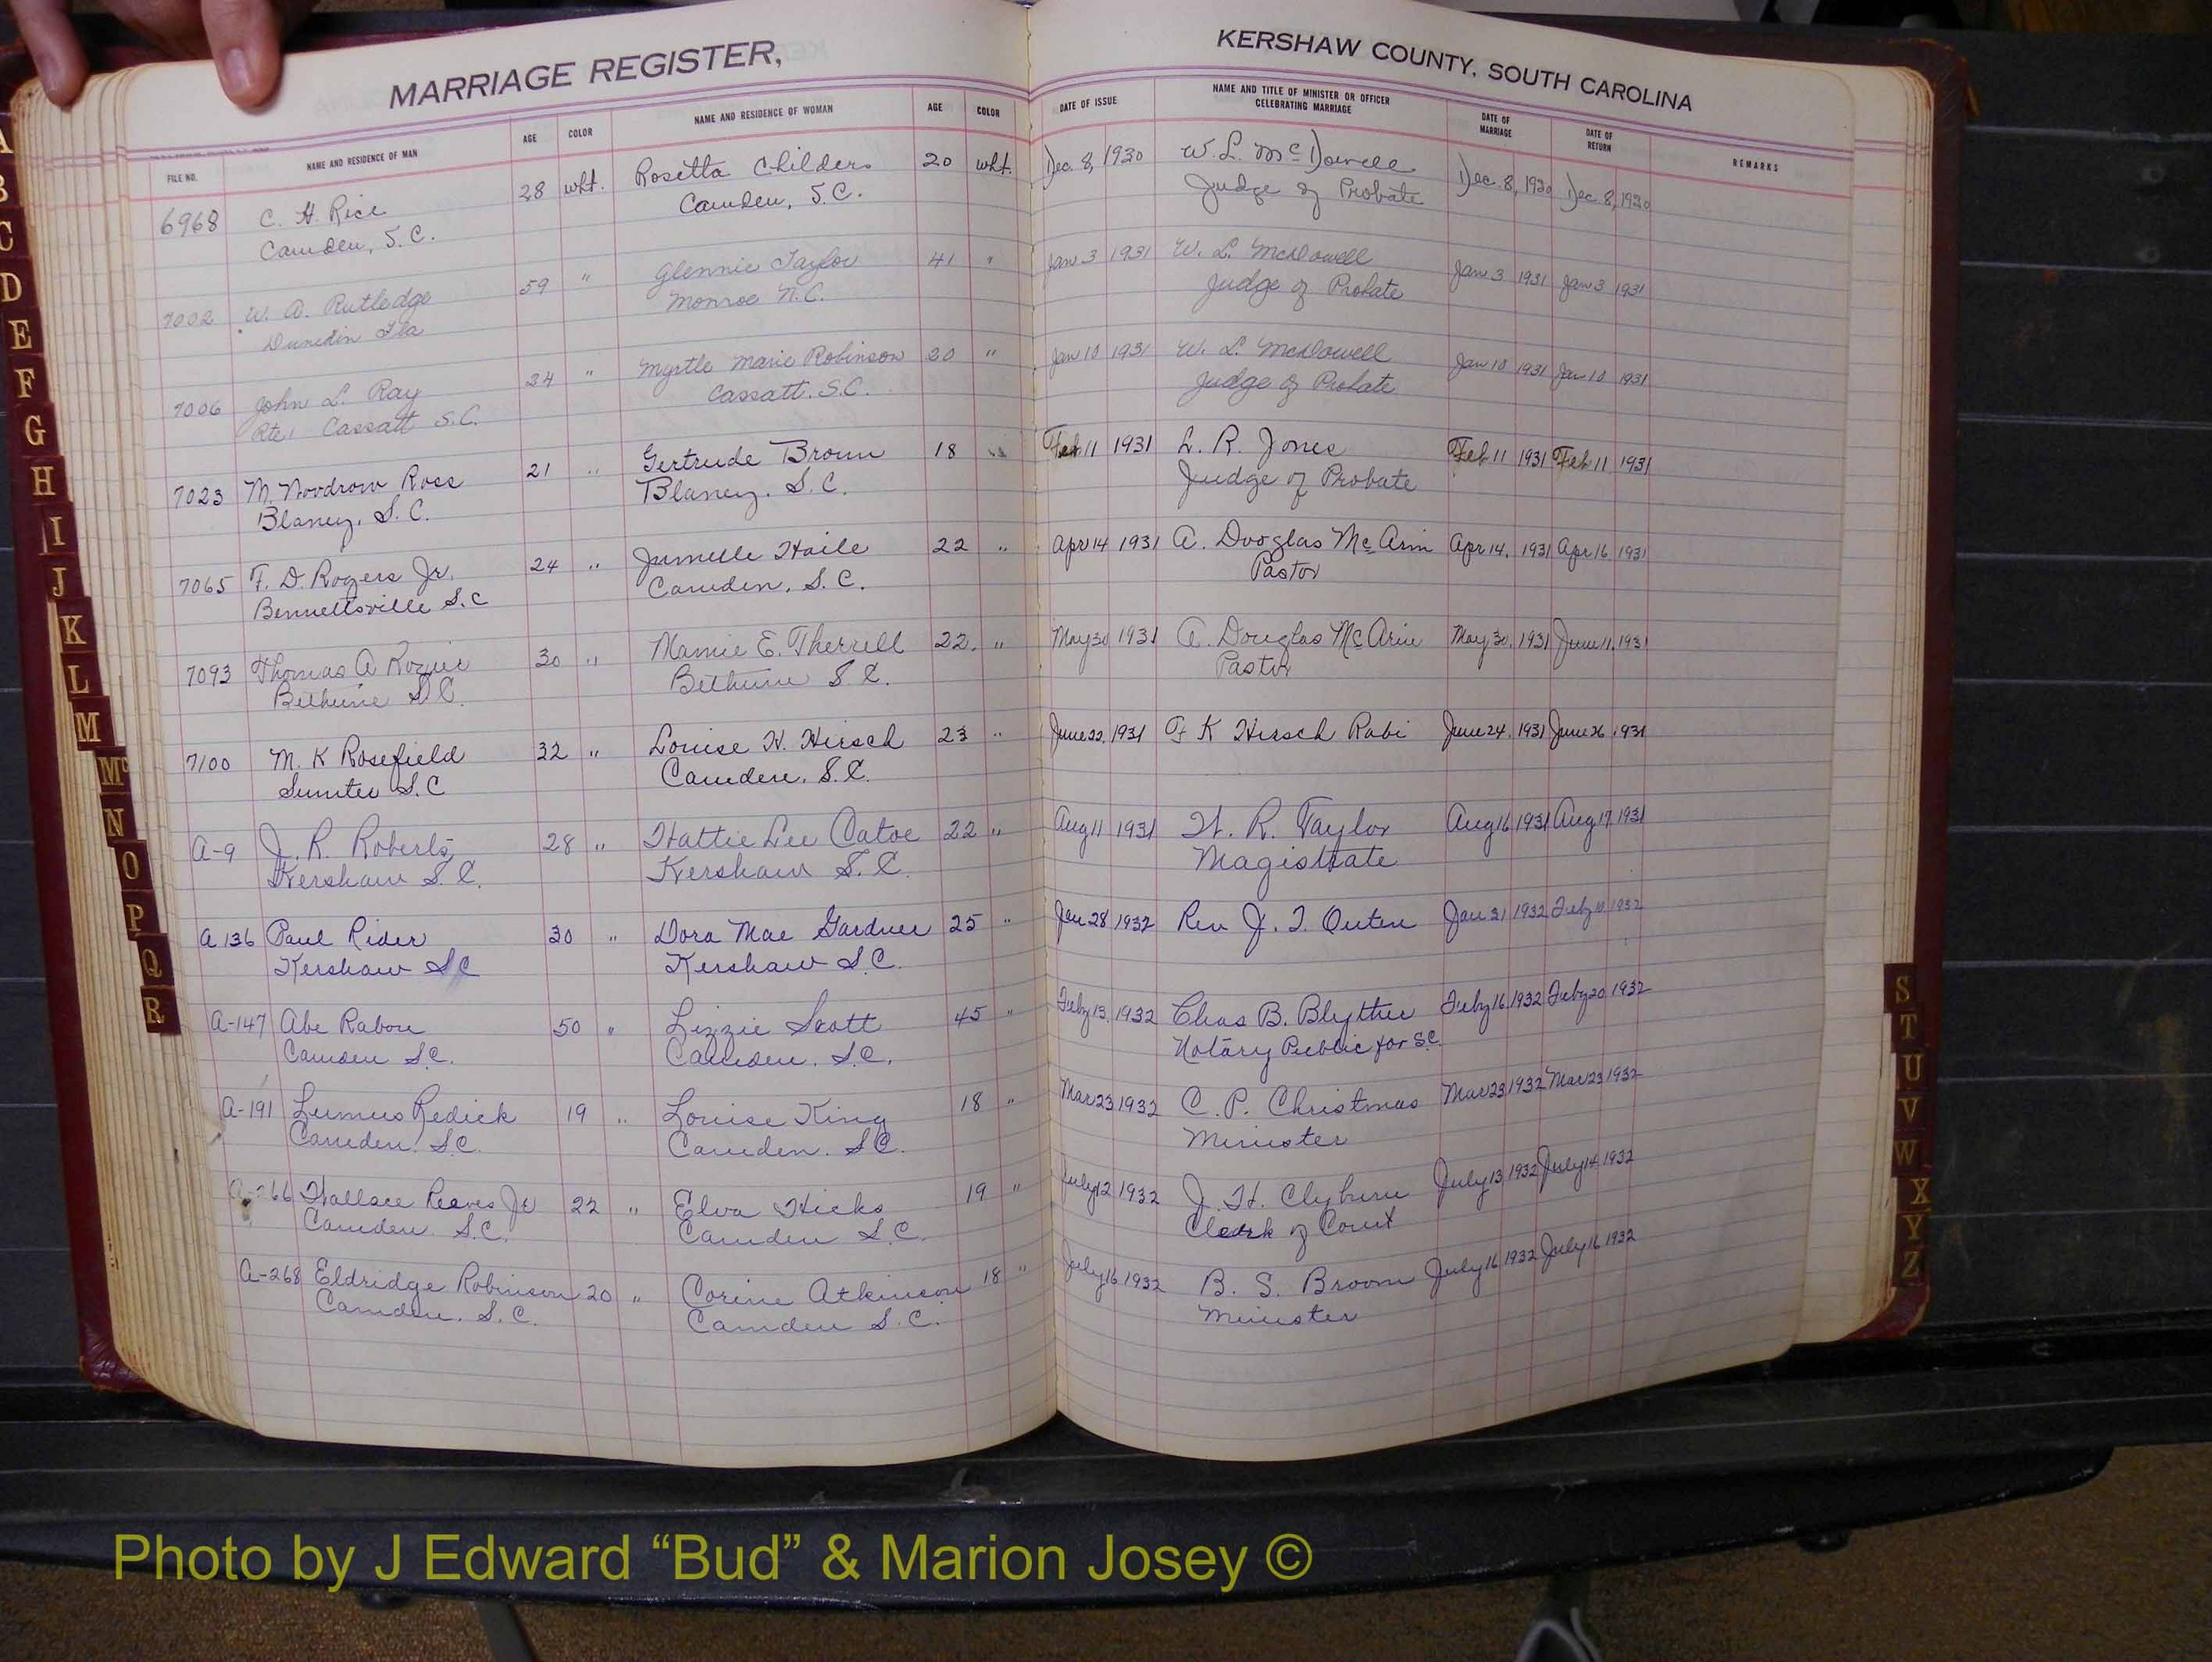 MARRIAGE REGISTER,
KERSHAW COUNTY, SOUTH CAROLINA
FILE NO. NAME AND RESIDENCE OF MAN AGE COLOR NAME AND RESIDENCE OF WOMAN AGE COLOR DATE OF ISSUE NAME AND TITLE OF MINISTER OR OFFICER CELEBRATING MARRIAGE DATE OF MARRIAGE DATE OF RETURN REMARKS
6968 C. H. Rice 28 wht. Rosetta Childers 20 wht. Dec. 8, 1930 W. L. McDowell Dec. 8, 1930 Dec. 8, 1930
Camden, S.C. Camden, S.C. Judge of Probate
7002 W. A. Rutledge 59 " Glennie Taylor 41 " Jan 3 1931 W. L. McDowell Jan 3 1931 Jan 3 1931
Dunedin Fla Monroe N.C. Judge of Probate
7006 John L. Ray 24 " Myrtle Marie Robinson 20 " Jan 10 1931 W. L. McDowell Jan 10 1931 Jan 10 1931
Rte 1 Cassatt S.C. Cassatt. S.C. Judge of Probate
7023 M. Woodrow Ross 21 " Gertrude Brown 18 " Feb 11 1931 L. R. Jones Feb 11 1931 Feb 11 1931
Blaney, S.C. Blaney, S.C. Judge of Probate
7065 F. D. Rogers Jr. 24 " Jumelle Haile 22 " Apr 14 1931 A. Douglas McArin Apr 14, 1931 Apr 16 1931
Bennettsville S.C Camden, S.C. Pastor
7093 Thomas A 30 " Mamie E. Therrell 22. " May 30 1931 A. Douglas McArin May 30, 1931 June 11, 1931
Bethune S.C. Bethune S.C. Pastor
7100 M. K Rosefield 32 " Louise H. Hirsch 23 " June 22, 1931 F K Hirsch Rabi June 24, 1931 June 26, 1931
Sumter S.C Camden, S.C.
A-9 J. R. Roberts 28 " Hattie Lee Catoe 22 " Aug 11 1931 H. R. Taylor Aug 16 1931 Aug 17 1931
Kershaw S.C. Kershaw S.C. Magistrate
A 136 Paul Rider 30 " Dora Mae Gardner 25 " Jan 28 1932 Rev J. T. Outen Jan 31 1932 Feby 1932
Kershaw S.C Kershaw S.C.
A-147 Abe Rabon 50 " Lizzie Scott 45 " Feby 13, 1932 Chas B. Blyther Feby 16 1932 Feby 20 1932
Camden S.C. Camden, S.C. Notary Public for S.C.
A-191 Lumus Redick 19 " Louise King 18 " Mar 23 1932 C. P. Christmas Mar 23 1932 Mar 23 1932
Camden, S.C. Camden. S.C. Minister
A-266 Wallace Reaves Jr 22 " Elva Hicks 19 " July 12 1932 J. H. Clyburn July 13 1932 July 14 1932
Camden S.C. Camden S.C. Clerk of Court
A-268 Eldridge Robinson 20 " Corine Atkinson 18 " July 16 1932 B. S. Broom July 16 1932 July 16 1932
Camden, S.C. Camden S.C. Minister
A
B
C
D
E
F
G
H
I
J
K
L
M
Mc
N
O
P
Q
R
S
T
U
V
W
X
Y
Z
Photo by J Edward “Bud” & Marion Josey ©